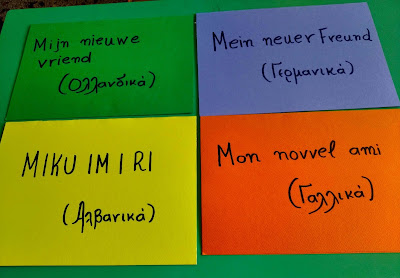 Mijn nieuwe
vriend
(Ολλανδικά)
Mein neuer Freund
(Γερμανικά)
MIKU IM I RI
(Αλβανικά)
Mon nouvel ami
(Γαλλικά)